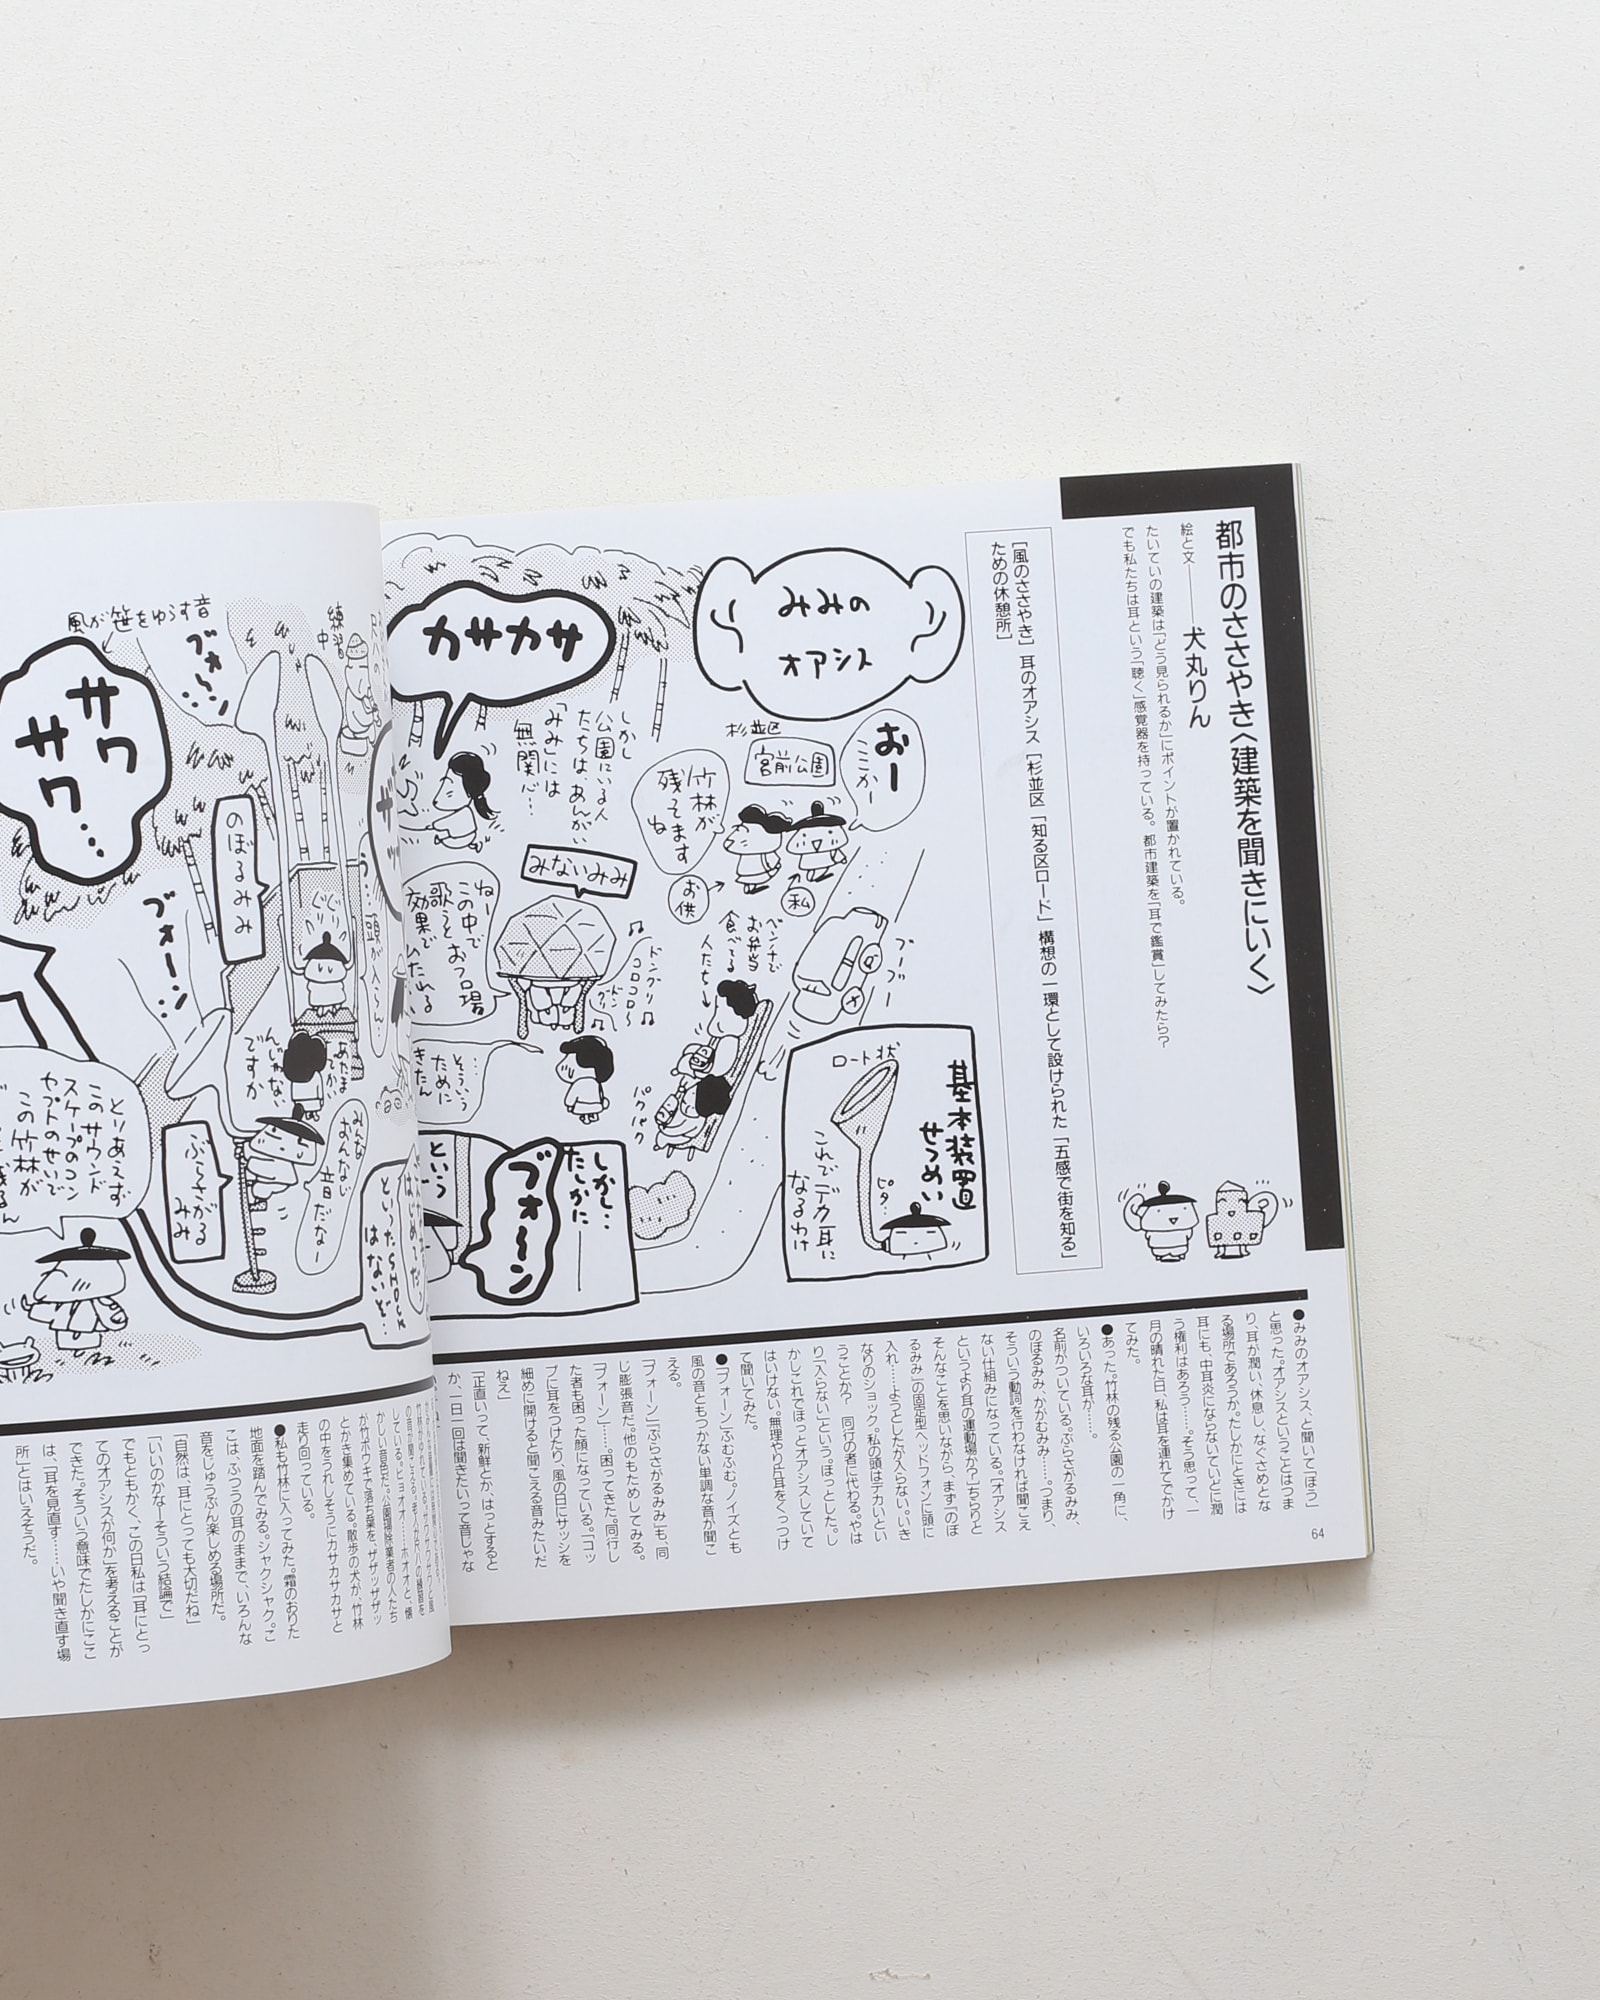 都市のささやき〈建築を聞きにいく〉
絵と文——犬丸りん
たいていの建築は「どう見られるか」にポイントが置かれている。
でも私たちは耳という「聴く」感覚器を持っている。都市建築を「耳で鑑賞」してみたら?
[風のささやき] 耳のオアシス [杉並区「知る区ロード」構想の一環として設けられた「五感で街を知る」
ための休憩所]
みみの
オアシス
おー
ここかー
杉並区
宮前公園
竹林が
残ってますね
お供
私
カサカサ
しかし
公園にいる人
たちは、あんがい
「みみ」には
無関心…
みないみみ
ねー
この中で
歌うとおフロ場
効果で
ドングリ
コロコロ〜
ドン
グリ
ベンチで
お弁当
食べてる
人たち
ブーブー
パクパク
…
そういう
ために
きたん
基本装置
せつめい
ロート状
ピタ…
これでデカ耳に
なるわけ
しかし…
たしかに
ブォ〜〜ン
という
練習中
風が笹をゆらす音
ブォ〜〜ン
サワ
サワ…
のぼるみみ
ブォーン
う…頭が入らん…
あたま
でかい
んじゃない
ですか
みんな
おんなじ
音だなー
ぶらさがる
みみ
といったSHOCK
はないぞ…
とりあえず
このサウンド
スケープのコン
セプトのせいで
この竹林が
●みみのオアシス、と聞いて「ほう」
と思った。オアシスということはつま
り、耳が潤い、休息し、なぐさめとな
る場所であろうか。たしかにときには
耳にも、中耳炎にならないていどに潤
う権利はあろう……。そう思って、一
月の晴れた日、私は耳を連れてでかけ
てみた。
●あった。竹林の残る公園の一角に、
いろいろな耳が……。
名前がついている。ぶらさがるみみ、
のぼるみみ、かがむみみ……。つまり、
そういう動詞を行わなければ聞こえ
ない仕組みになっている。「オアシス
というより耳の運動場か?」ちらりと
そんなことを思いながら、まず「のぼ
るみみ」の固定型ヘッドフォンに頭に
入れ……ようとしたが入らない。いき
なりのショック。私の頭はデカいとい
うことか? 同行の者に代わる。「やは
り「入らない」という。ほっとした。し
かしこれでほっとオアシスしていて
はいけない。無理やり片耳をくっつけ
て聞いてみた。
●「ブォーン」ふむふむ。ノイズとも
風の音ともつかない単調な音が聞こ
える。
「ブォーン」「ぶらさがるみみ」も、同
じ膨張音だ。他のもためしてみる。
「ブォーン」……。困ってきた。同行し
た者も困った顔になっている。「コッ
プに耳をつけたり、風の日にサッシを
細めに開けると聞こえる音みたいだ
ねえ」
「正直いって、新鮮とか、はっとすると
か、一日一回は聞きたいって音じゃな
している。ヒョオオ……ホオオと、懐
かしい音色だ。公園掃除業者の人たち
が竹ボウキで落ち葉を、ザザッザザッ
とかき集めている。散歩の犬が、竹林
の中をうれしそうにカサカサカサと
走り回っている。
●私も竹林に入ってみた。霜のおりた
地面を踏んでみる。シャクシャク。こ
こは、ふつうの耳のままで、いろんな
音をじゅうぶん楽しめる場所だ。
「自然は、耳にとっても大切だね」
「いいのかなーそういう結論で」
でもともかく、この日私は「耳にとっ
てのオアシスが何か」を考えることが
できた。そういう意味でたしかにここ
は、「耳を見直す……いや聞き直す場
所」とはいえそうだ。
64